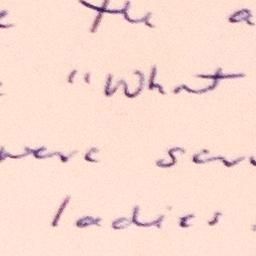 the a
"What
were
ladies